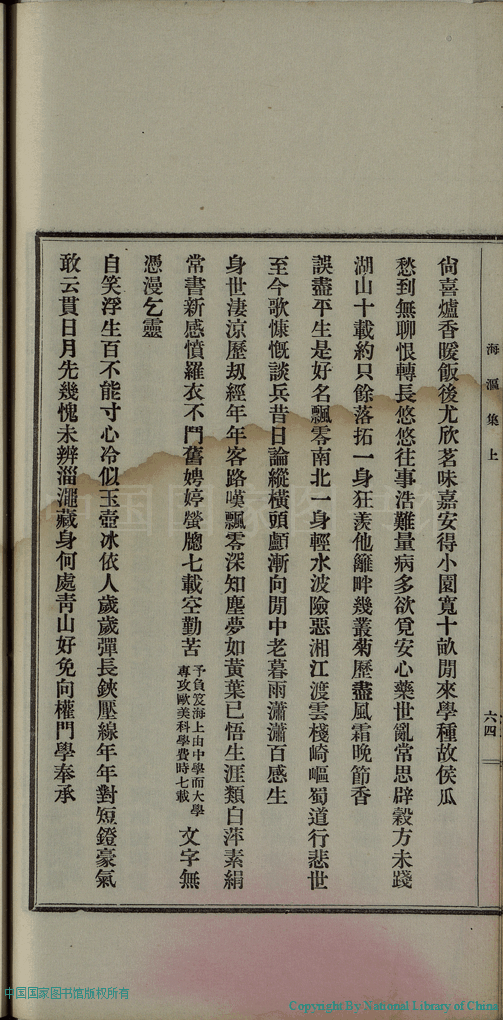 海漚集上
六四
尙喜爐香暖飯後尤欣茗味嘉安得小園寬十畝閒來學種故侯瓜
愁到無聊恨轉長悠悠往事浩難量病多欲覓安心藥世亂常思辟穀方未踐
湖山十載約只餘落拓一身狂羨他籬畔幾叢菊歷盡風霜晚節香
誤盡平生是好名飄零南北一身輕水波險惡湘江渡雲棧崎嶇蜀道行悲世
至今歌慷慨談兵昔日論縱橫頭顱漸向閒中老暮雨瀟瀟百感生
身世淒涼歷刼經年年客路嘆飄零深知塵夢如黃葉已悟生涯類白萍素絹
常書新感憤羅衣不鬥舊娉婷螢牕七載空勤苦
予負笈海上由中學而大學
專攻歐美科學費時七載
文字無
憑漫乞靈
自笑浮生百不能寸心冷似玉壺冰依人歲歲彈長鋏壓線年年對短鐙豪氣
敢云貫日月先幾愧未辨淄澠藏身何處靑山好免向權門學奉承
中国国家图书馆版权所有
Copyright By National Library of China